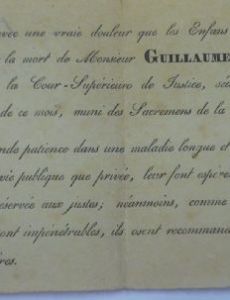 avec une vraie douleur que les Enfans
la mort de Monsieur GUILLAUME
la Cour-Supérieure de Justice,
de ce mois, muni des Sacremens de la
patience dans une maladie longue et
vie publique que privée, leur font
réservée aux justes; néanmoins, comme
sont impénétrables, ils osent